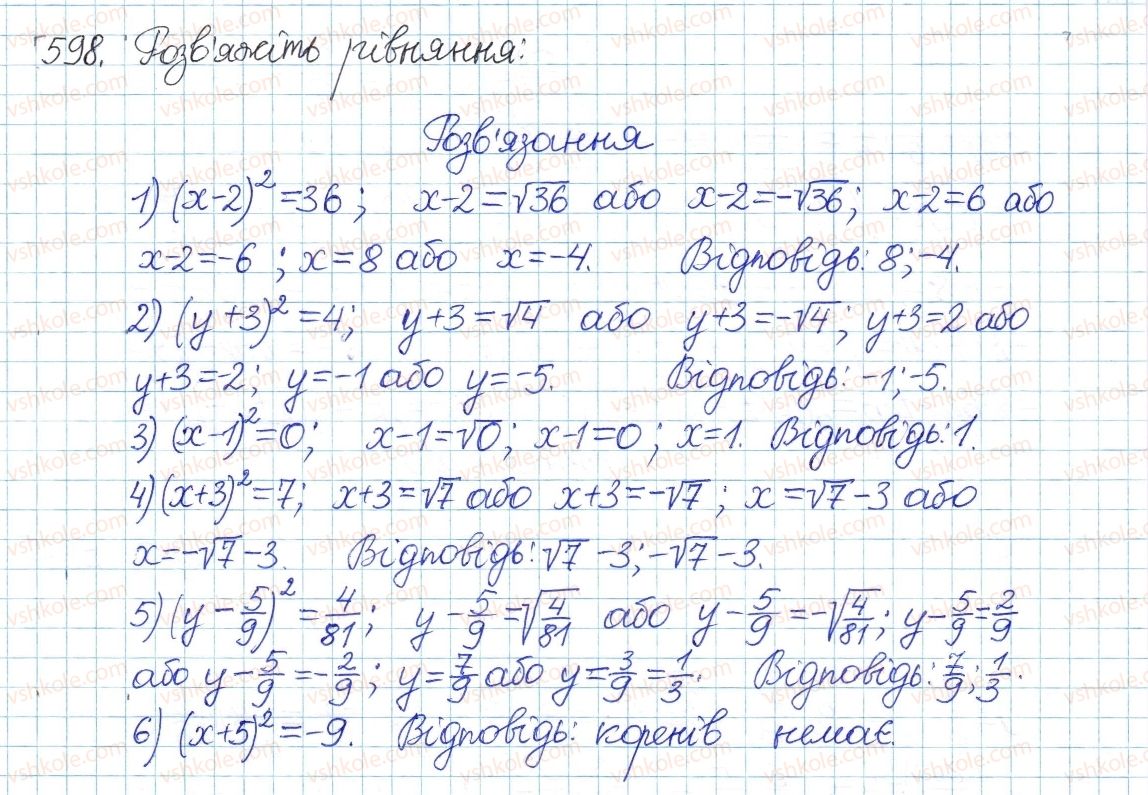 598. Розв'яжіть рівняння:
Розв'язання
1) (x-2)²=36; x-2=√36 або x-2=-√36; x-2=6 або
x-2=-6; x=8 або x=-4. Відповідь: 8;-4.
2) (y+3)²=4; y+3=√4 або y+3=-√4; y+3=2 або
y+3=-2; y=-1 або y=-5. Відповідь: -1;-5.
3) (x-1)²=0; x-1=√0; x-1=0; x=1. Відповідь: 1.
4) (x+3)²=7; x+3=√7 або x+3=-√7; x=√7-3 або
x=-√7-3. Відповідь: √7-3; -√7-3.
5) (y-5/9)²=4/81; y-5/9=√(4/81) або y-5/9=-√(4/81); y-5/9=2/9
або y-5/9=-2/9; y=7/9 або y=3/9=1/3. Відповідь: 7/9; 1/3.
6) (x+5)²=-9. Відповідь: коренів немає.